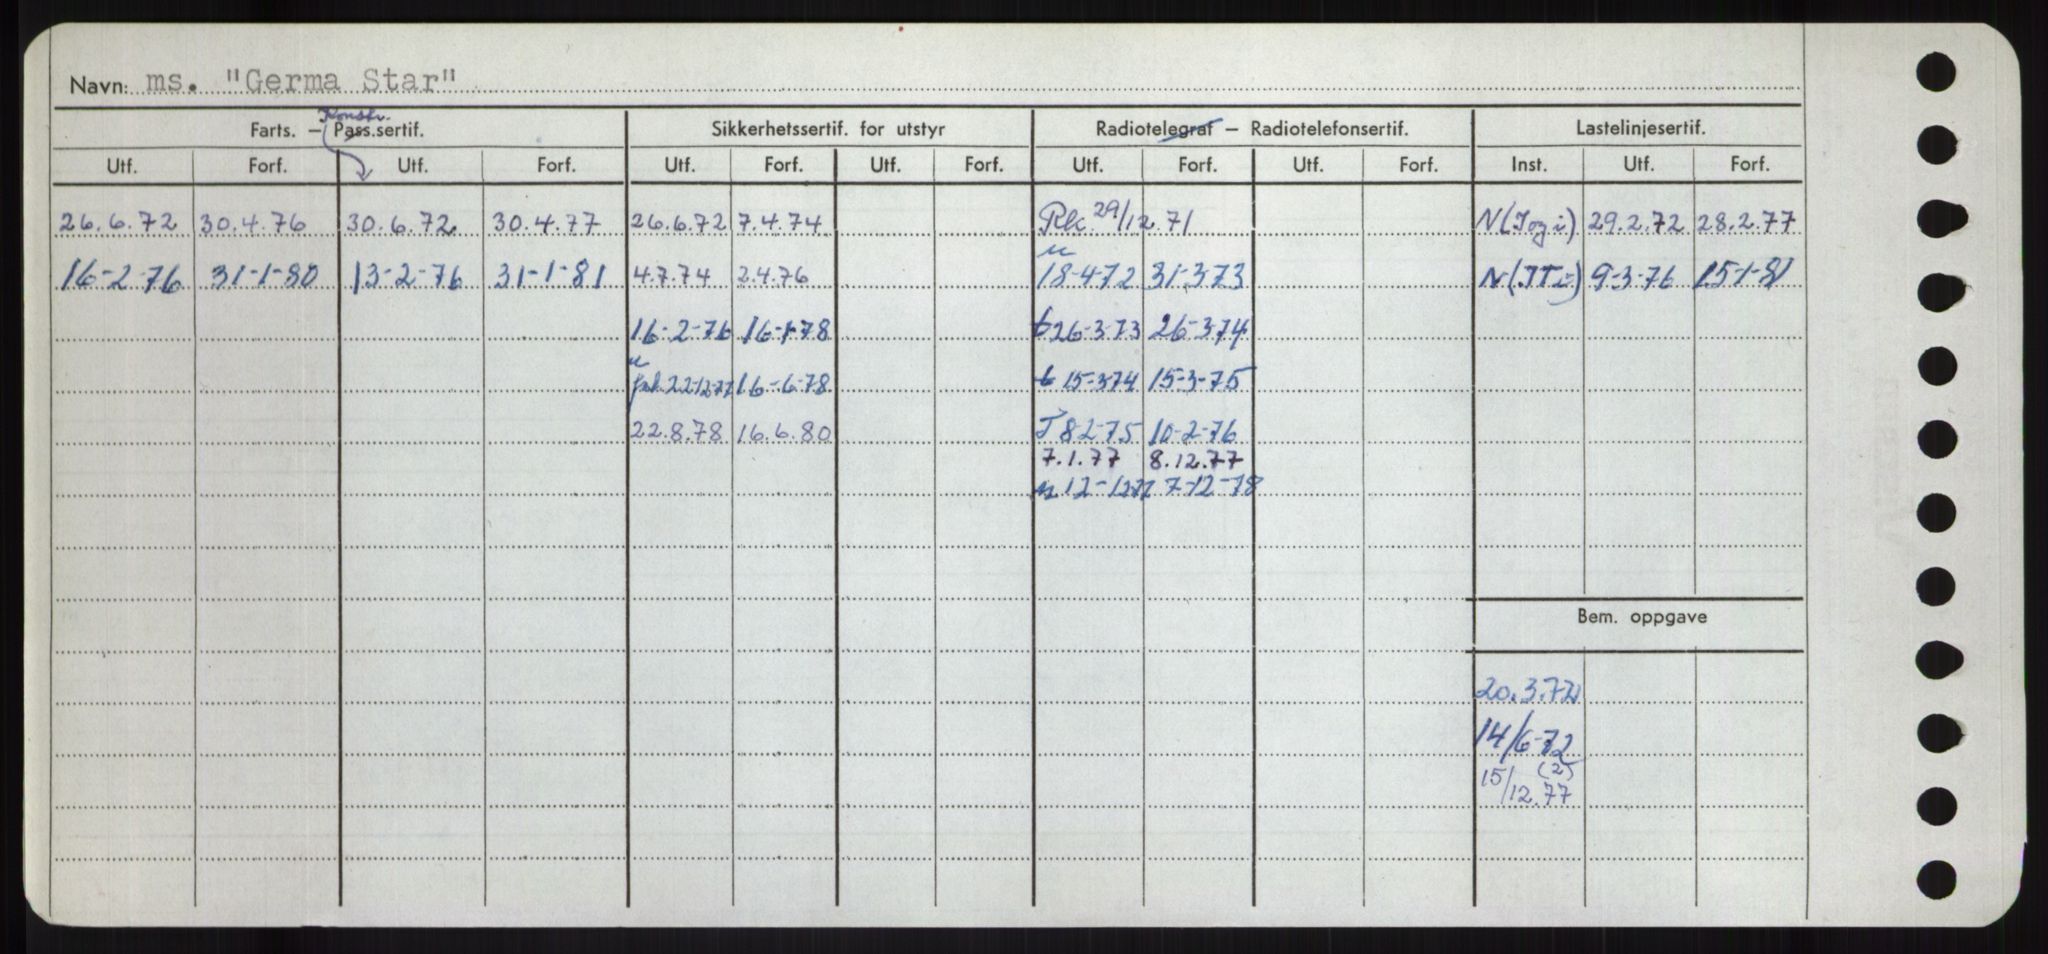 Navn: ms. "Germa Star"
Konstr.
Farts. – Pass.sertif. Sikkerhetssertif. for utstyr Radiotelegraf – Radiotelefonsertif. Lastelinjesertif.
Utf. Forf. Utf. Forf. Utf. Forf. Utf. Forf. Utf. Forf. Utf. Forf. Inst. Utf. Forf.
26.6.72 30.4.76 30.6.72 30.4.77 26.6.72 7.4.74 29/12.71 29.2.72 28.2.77
16-2-76 31-1-80 13-2-76 31-1-81 4.7.74 2.4.76 18-4-72 31-3-73 9-3-76 15-1-81
16-2-76 16-1-78 26-3-73 26-3-74
22-12-77 16-6-78 15-3-74 15-3-75
22.8.78 16.6.80 8-2-75 10-2-76
7.1.77 8.12.77
12-12-77 7-12-78
Bem. oppgave
20.3.72
14/6-72
(2)
15/12.77